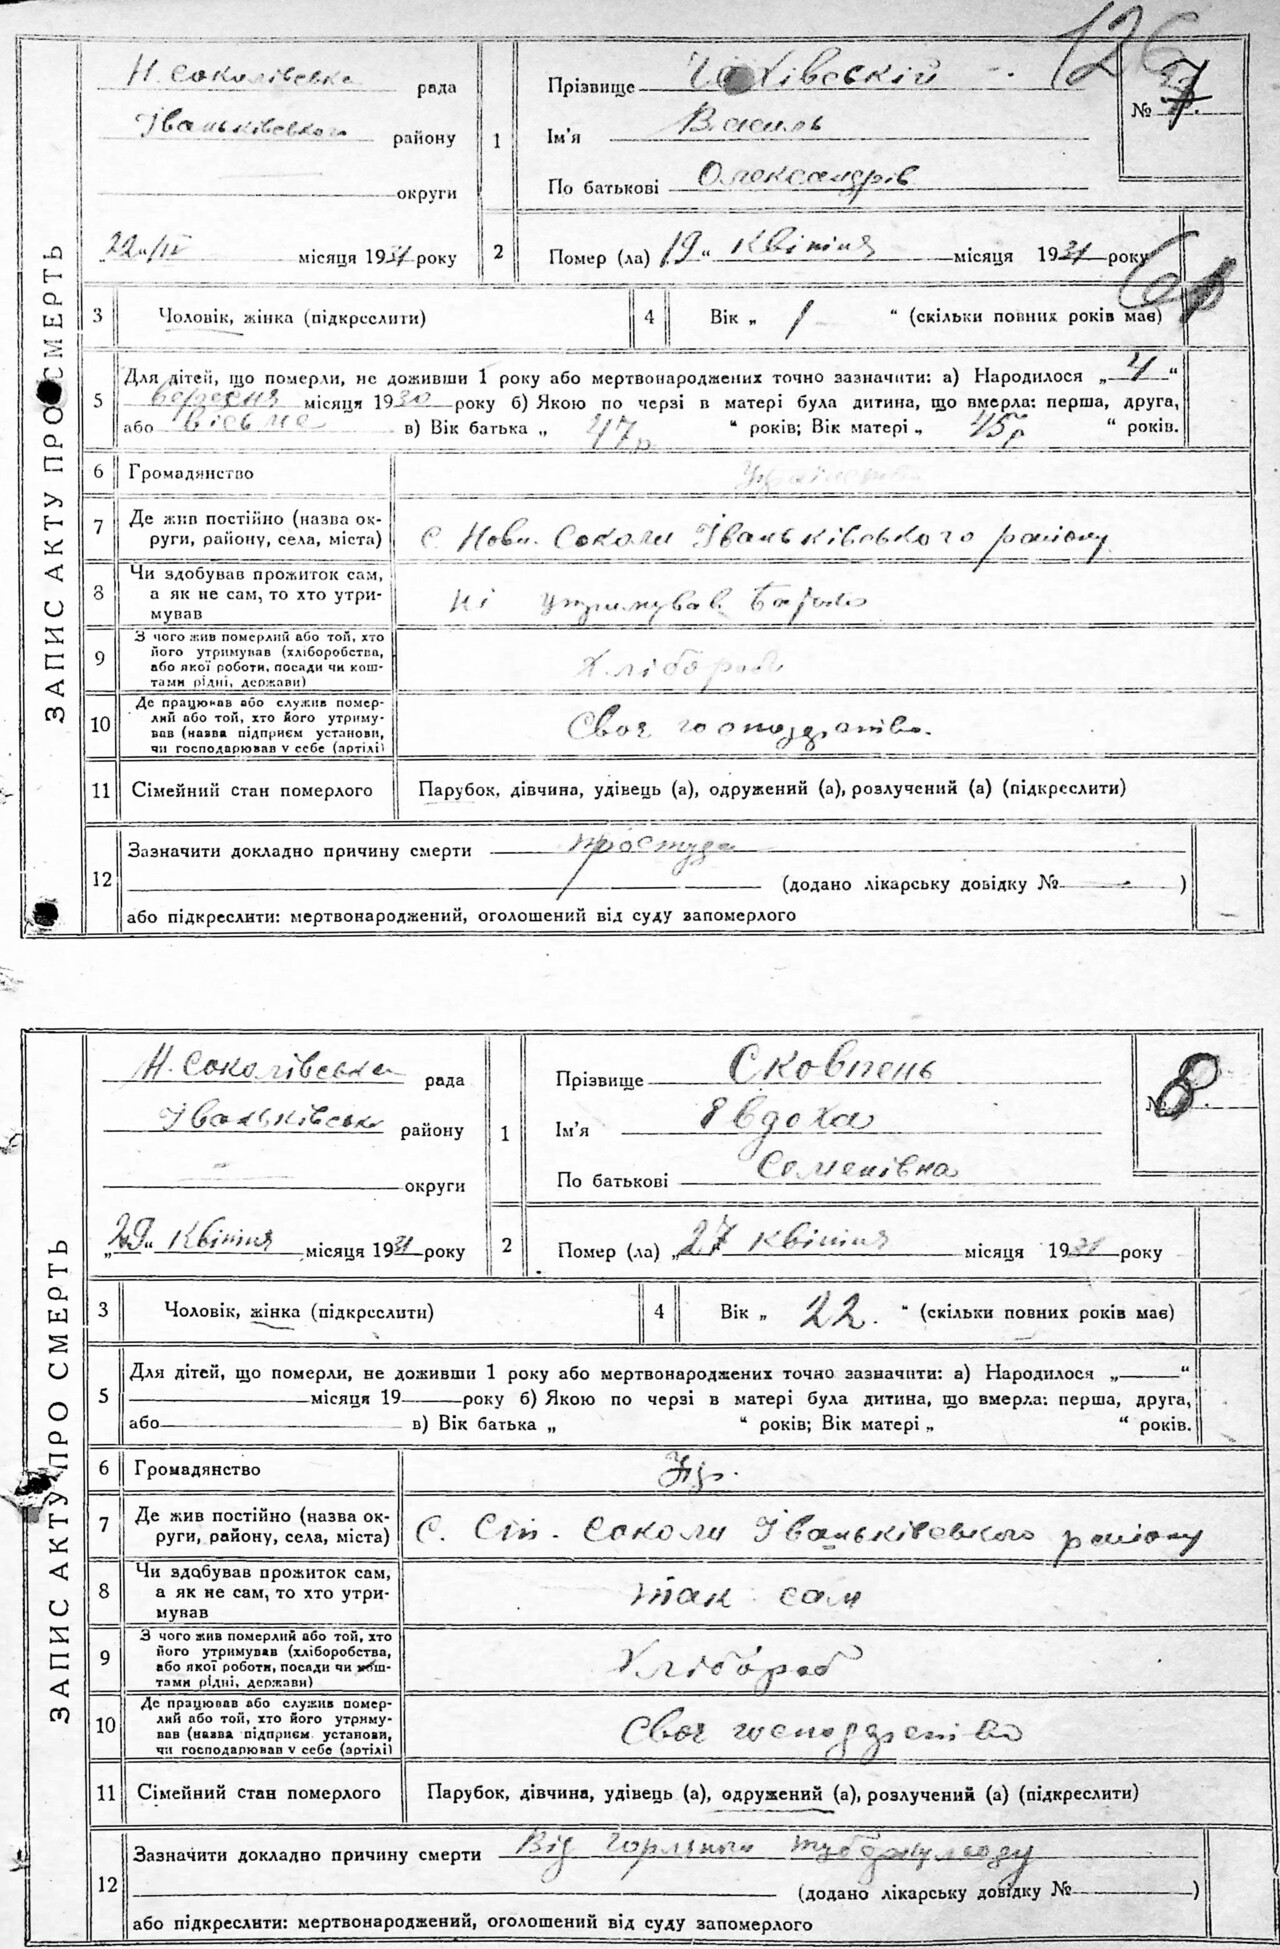 126
ЗАПИС АКТУ ПРО СМЕРТЬ
Н. Соколівська рада
Іваньківського району
округи
22/IV місяця 1931 року
1
Прізвище
Ім'я Василь
По батькові Олександрів
№ 7
2 Помер (ла) 19 “ квітня місяця 1931 року
3 Чоловік, жінка (підкреслити)
4 Вік „ 1 “ (скільки повних років має)
5 Для дітей, що померли, не доживши 1 року або мертвонароджених точно зазначити: а) Народилося „ 4 “
вересня місяця 1930 року б) Якою по черзі в матері була дитина, що вмерла: перша, друга,
або вісьма в) Вік батька „ 47 р “ років; Вік матері „ 45 р “ років.
6 Громадянство
7 Де жив постійно (назва ок-
руги, району, села, міста) С. Нов. Соколи Іваньківського району
8 Чи здобував прожиток сам,
а як не сам, то хто утри-
мував Ні утримував батько
9 З чого жив померлий або той, хто
його утримував (хліборобства,
або якої роботи, посади чи кош-
тами рідні, держави) Хлібороб
10 Де працював або служив помер-
лий або той, хто його утриму-
вав (назва підприєм установи,
чи господарював у себе (артілі) Своє господарство.
11 Сімейний стан померлого Парубок, дівчина, удівець (а), одружений (а), розлучений (а) (підкреслити)
12 Зазначити докладно причину смерти простуда
(додано лікарську довідку № )
або підкреслити: мертвонароджений, оголошений від суду запомерлого
ЗАПИС АКТУ ПРО СМЕРТЬ
Н. Соколівська рада
Іваньківськ району
округи
„29“ квітня місяця 1931 року
1
Прізвище Сковпень
Ім'я Євдоха
По батькові Семенівна
№ 8
2 Помер (ла) „27 квітня місяця 1931 року
3 Чоловік, жінка (підкреслити)
4 Вік „ 22. “ (скільки повних років має)
5 Для дітей, що померли, не доживши 1 року або мертвонароджених точно зазначити: а) Народилося „ “
місяця 19 року б) Якою по черзі в матері була дитина, що вмерла: перша, друга,
або в) Вік батька „ “ років; Вік матері „ “ років.
6 Громадянство Укр.
7 Де жив постійно (назва ок-
руги, району, села, міста) С. Ст. Соколи Іваньківського району
8 Чи здобував прожиток сам,
а як не сам, то хто утри-
мував так сам
9 З чого жив померлий або той, хто
його утримував (хліборобства,
або якої роботи, посади чи кош-
тами рідні, держави) Хлібороб
10 Де працював або служив помер-
лий або той, хто його утриму-
вав (назва підприєм. установи,
чи господарював у себе (артілі) Своє господарство
11 Сімейний стан померлого Парубок, дівчина, удівець (а), одружений (а), розлучений (а) (підкреслити)
12 Зазначити докладно причину смерти Від горляного туберкульозу
(додано лікарську довідку № )
або підкреслити: мертвонароджений, оголошений від суду запомерлого